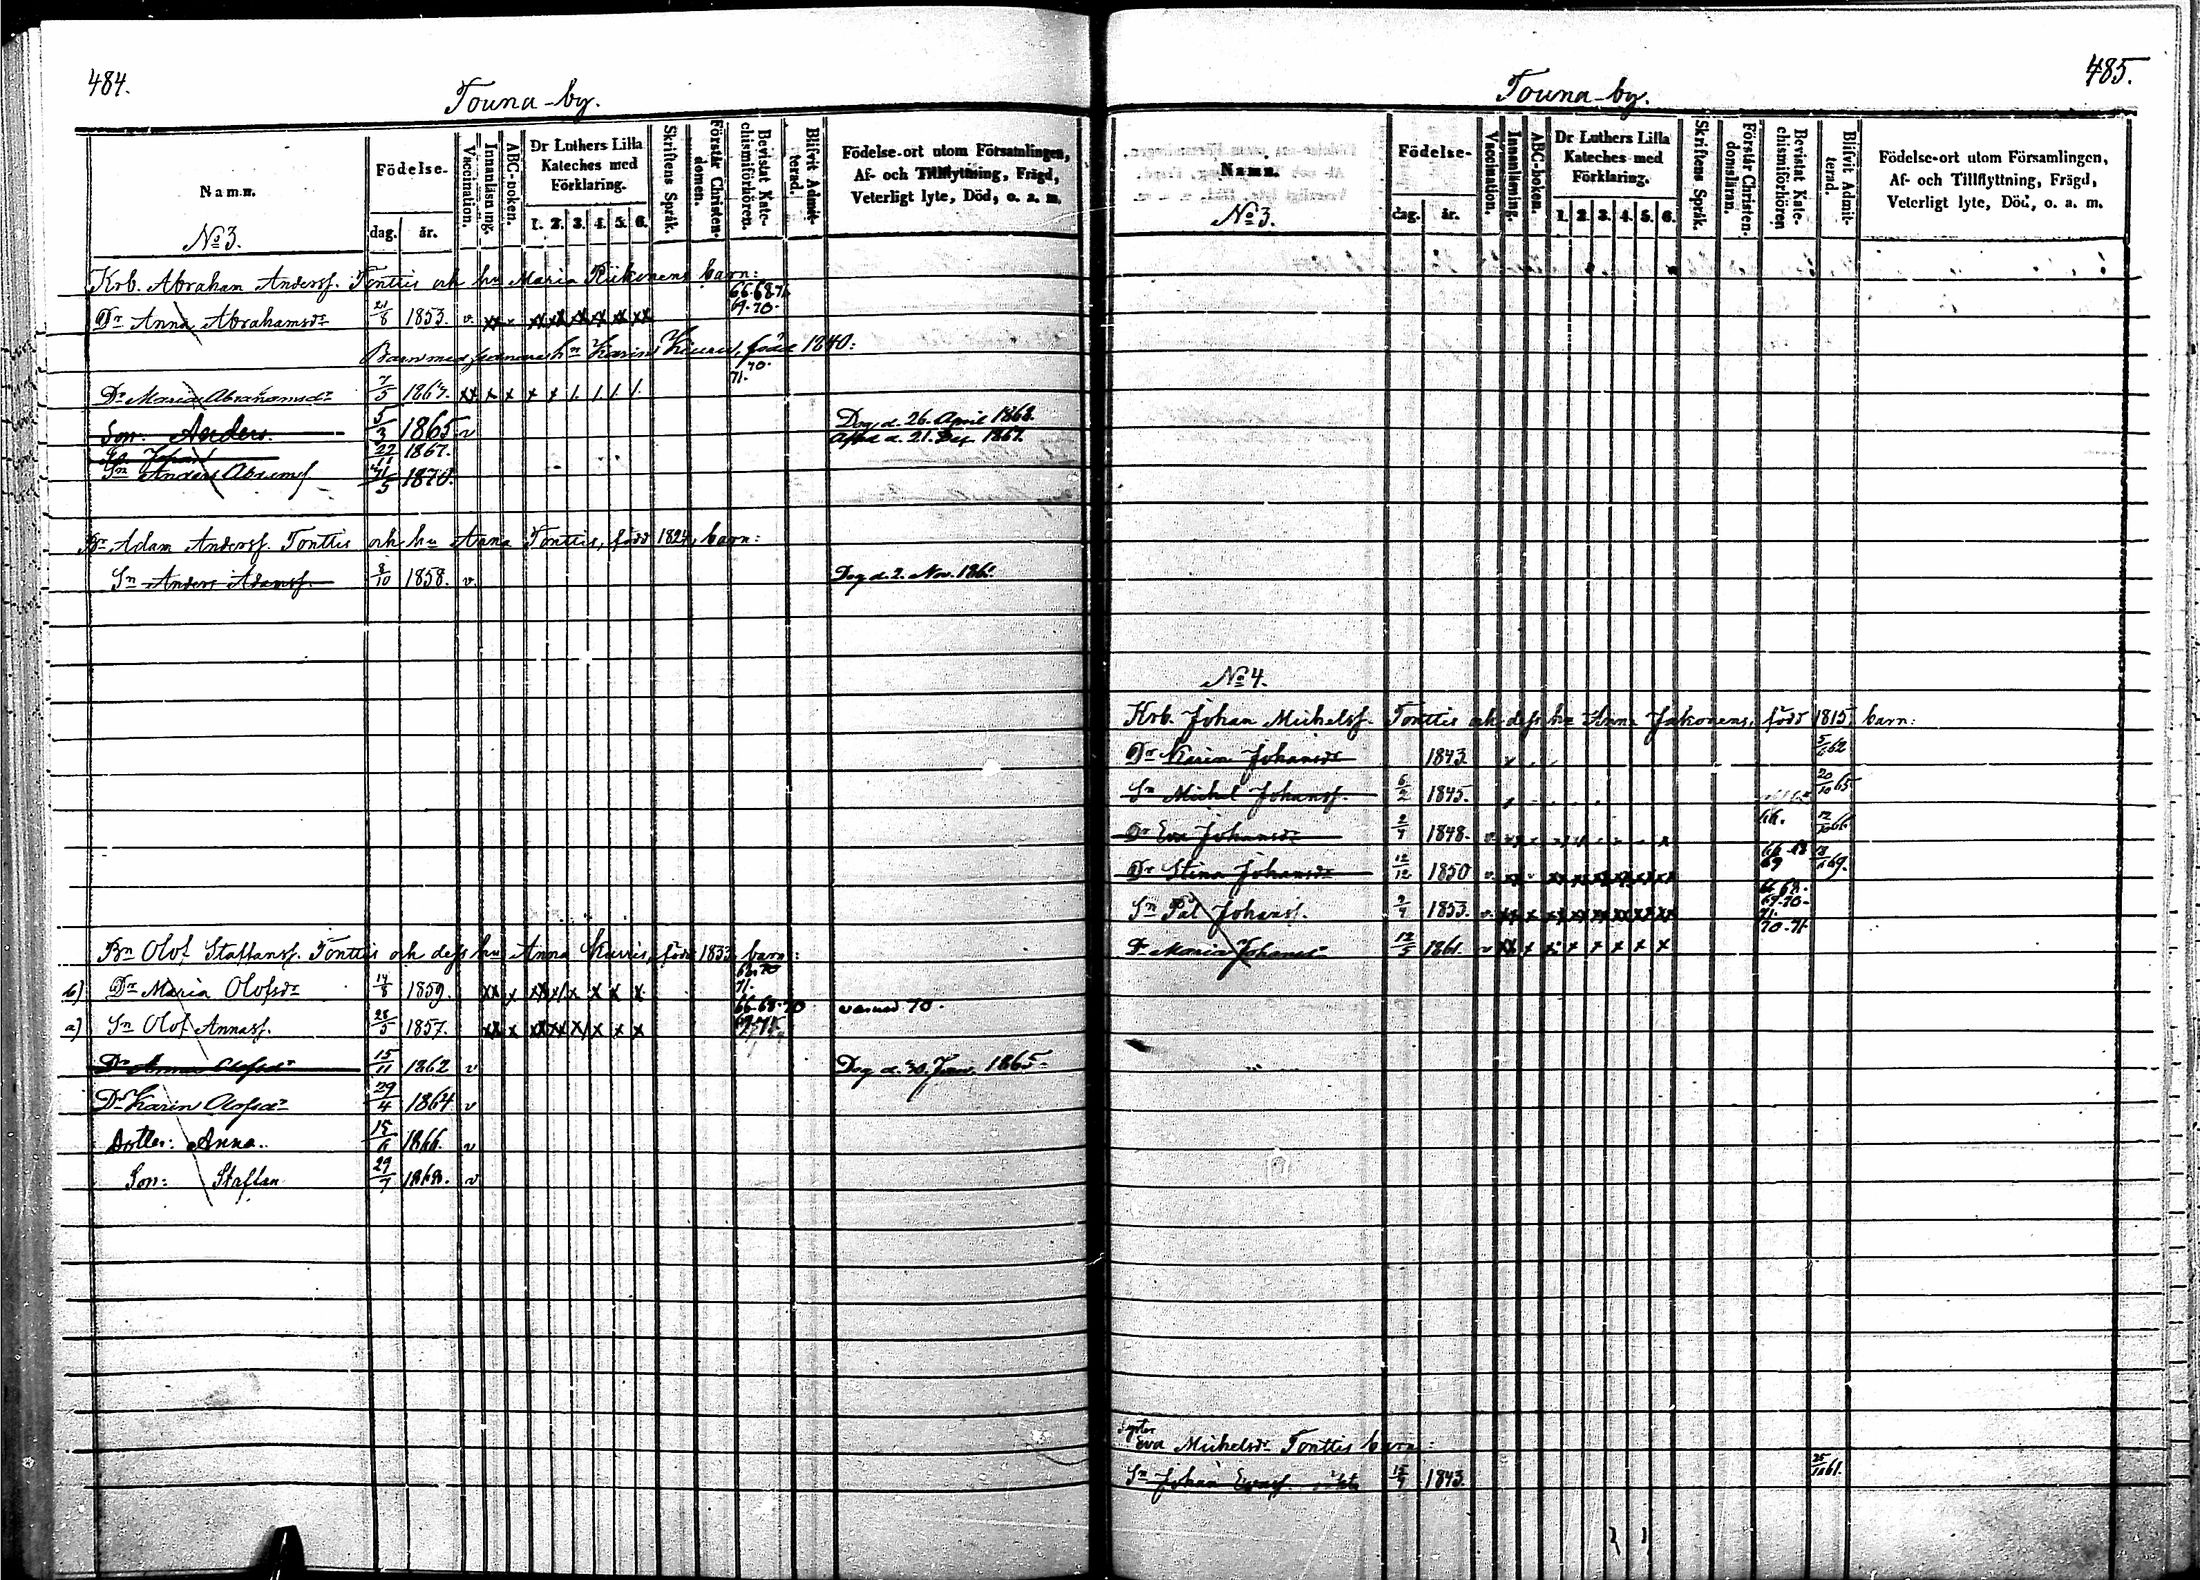 484.
Touna-by.
Namn.
Födelse-
dag. år.
Vaccination.
Innanläsning.
ABC-boken.
Dr Luthers Lilla
Kateches med
Förklaring.
1. 2. 3. 4. 5. 6.
Skriftens Språk.
Förstår Christen-
domen.
Bevistat Kate-
chismiförhören.
Blifvit Admit-
terad.
Födelse-ort utom Församlingen,
Af- och Tillflyttning, Frägd,
Veterligt lyte, Död, o. s. m.
No 3.
Krb. Abraham Anderss. Tonttis och hu Maria Riikonens barn:
66.68.71
69.70.
Dr Anna Abrahamsdr 21/8 1853. v. xx
Barn med hn Karin född 1840:
70.
71.
Dr Maria Abrahamsdr 7/5 1867. xx x x x x 1. 1. 1. 1.
Son. Anders. 5/3 1865 v Dog d. 26. April 1868.
Johan 22/11 1867. d. 21. 1867.
Sn Anders Abramss. 1870.
Br Adam Anderss. Tonttis och hu Anna Tonttis, född 1824, barn:
Sn Anders Adamss. 8/10 1858. v. Dog d. 2. Nov.
Bn Olof Staffanss. Tonttis och dess hu Anna Kurris, född 1833 barn:
70
71.
b) Dr Maria Olofsdr 14/8 1859. xx x xx x x x x x
66.68.70 70.
a) Sn Olof Annass. 28/5 1857. xx x xx xx x x x x
Dr Anna Olofsdr 15/11 1862 v Dog d. 30. Janu. 1865.
Dr Karin Olofsdr 29/4 1864 v
Dotter: Anna. 15/6 1866. v
Son: Staffan 29/7 1868. v
485.
Touna-by.
Namn.
Födelse-
dag. år.
Vaccination.
Innanläsning.
ABC-boken.
Dr Luthers Lilla
Kateches med
Förklaring.
1. 2. 3. 4. 5. 6.
Skriftens Språk.
Förstår Christen-
domsläran.
Bevistat Kate-
chismiförhören
Blifvit Admit-
terad.
Födelse-ort utom Församlingen,
Af- och Tillflyttning, Frägd,
Veterligt lyte, Död, o. a. m.
No 3.
No 4.
Krb. Johan Michelss. Tonttis och dess hu Anna Jakonens, född 1815, barn:
Dr Karin Johansdr 1843. 5/6 62
Sn Michel Johanss. 6/2 1845. 20/10 65
Dr Eva Johansdr 2/7 1848. v 66. 12/10 66
66.68
69
Dr Stina Johansdr 12/12 1850 v. 69.
66.68.
69.70.
71.
Sn Pål Johanss. 2/7 1853. v.
70.71
Dr Maria Johansdr 12/5 1861. v xx x x x x x x x
Syster
Eva Michelsdr Tonttis barn:
Sn Johan Evass. 15/7 1843. 25/10 61.